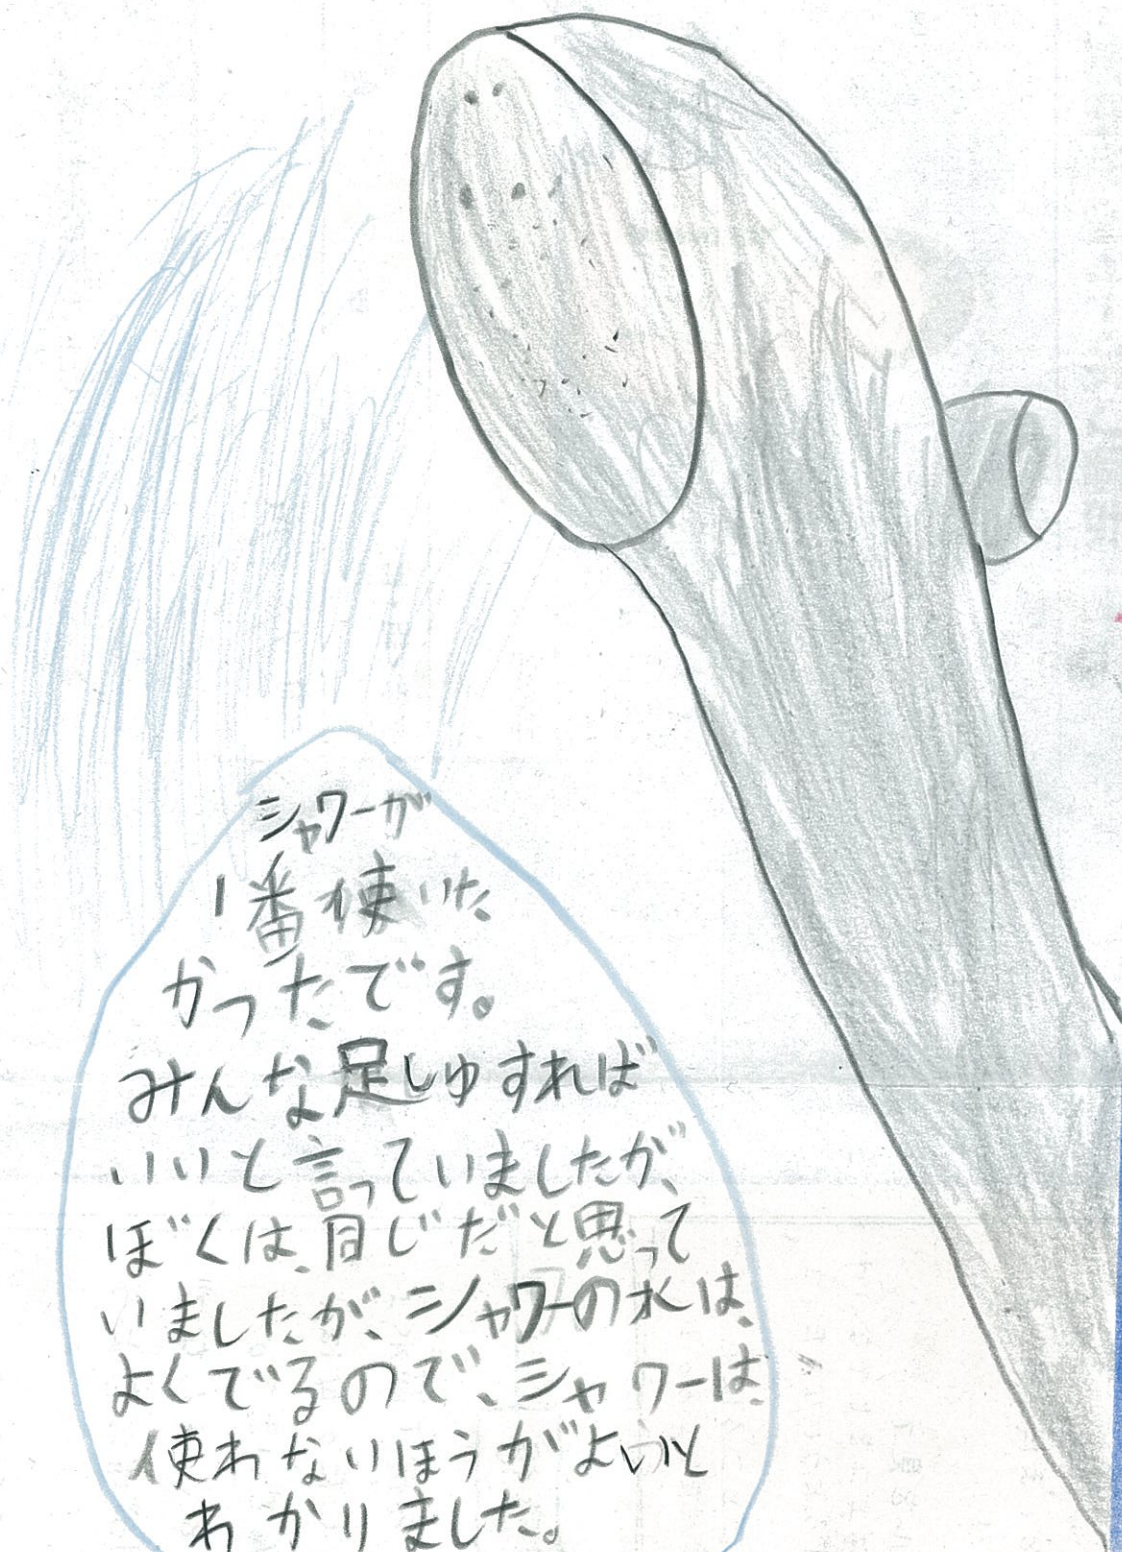 シャワーが
1番使いた
かったです。
みんな足しゅすれば
いいと言っていましたが、
ぼくは、同じだと思って
いましたが、シャワーの水は、
よくでるので、シャワーは、
使わないほうがよいと
わかりました。